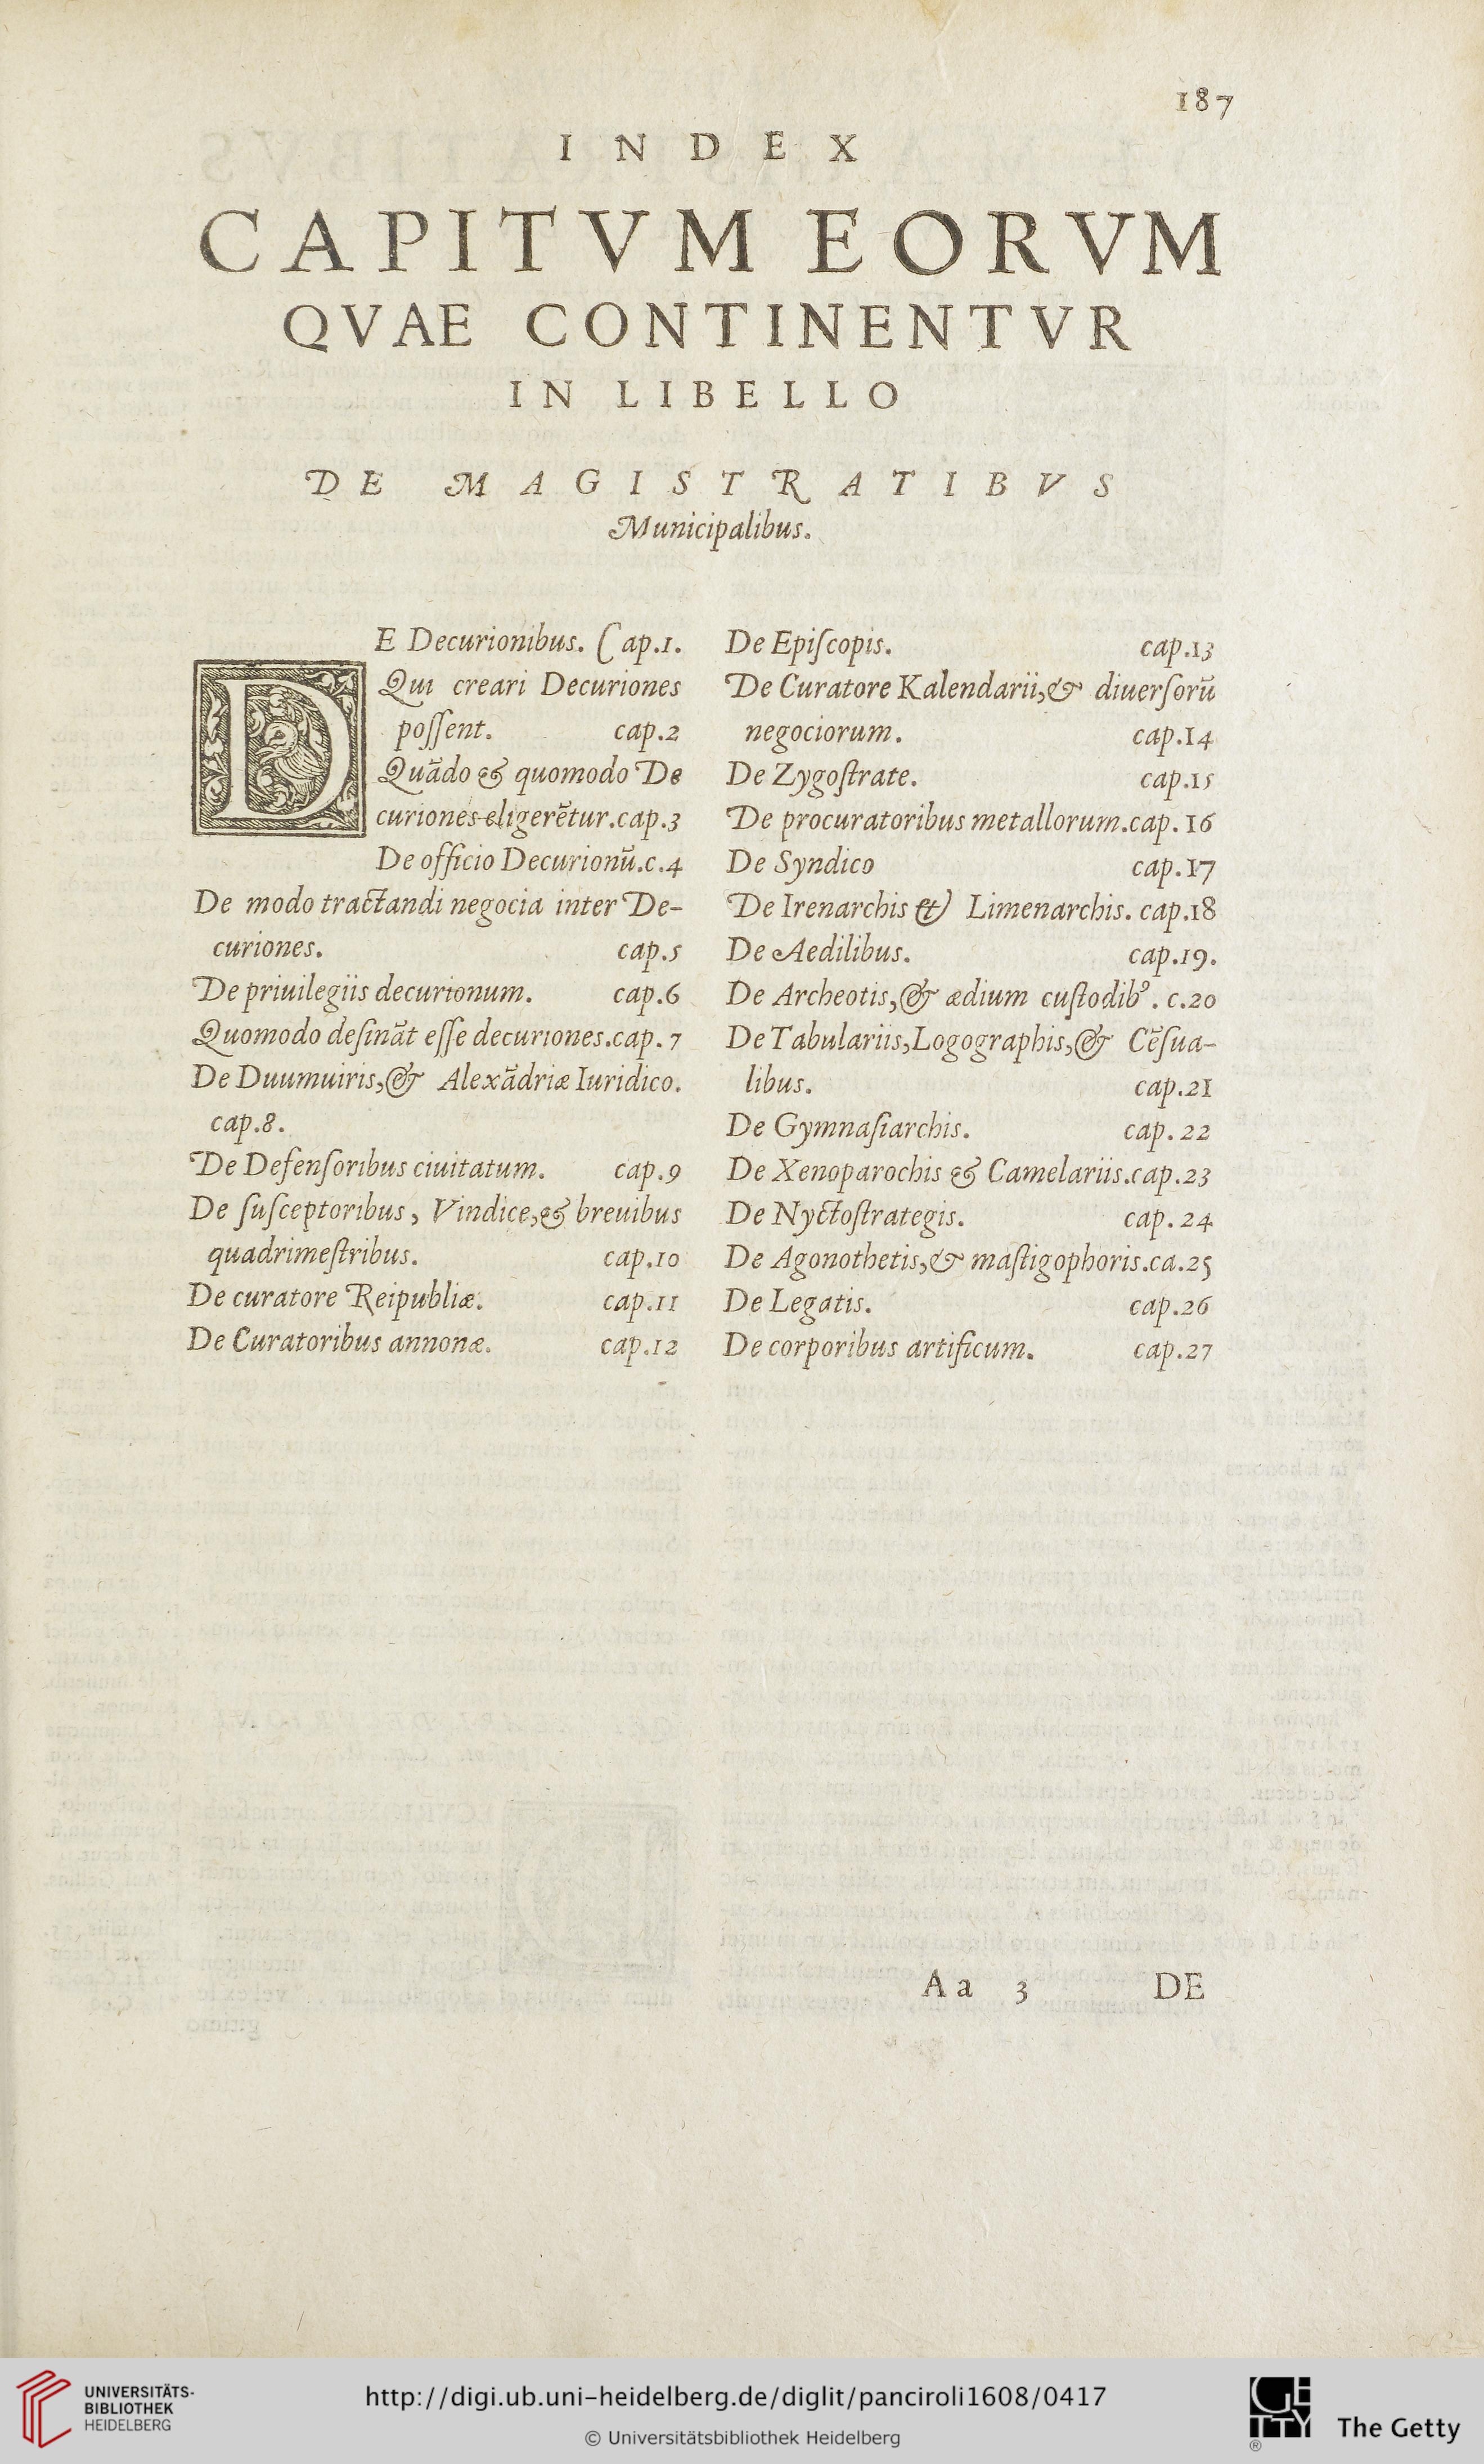 187
INDEX
CAPITVM EORVM
QVAE CONTINENTVR
IN LIBELLO
DE MAGISTRATIBVS
Municipalibus.
DE Decurionibus. Cap.1.
Qui creari Decuriones
possent. cap.2
Quãdo & quomodo De
curiones eligerẽtur.cap.3
De officio Decurionũ.c.4
De modo tractandi negocia inter De-
curiones. cap.5
De priuilegiis decurionum. cap.6
Quomodo desinãt esse decuriones.cap.7
De Duumuiris,& Alexãdriæ Iuridico.
cap.8.
De Defensoribus ciuitatum. cap.9
De susceptoribus, Vindice,& breuibus
quadrimestribus. cap.10
De curatore Reipubliæ. cap.11
De Curatoribus annonæ. cap.12
De Episcopis. cap.13
De Curatore Kalendarii,& diuersorũ
negociorum. cap.14
De Zygostrate. cap.15
De procuratoribus metallorum.cap.16
De Syndico cap.17
De Irenarchis & Limenarchis. cap.18
De Aedilibus. cap.19.
De Archeotis,& ædium custodibꝰ. c.20
De Tabulariis,Logographis,& Cẽsua-
libus. cap.21
De Gymnasiarchis. cap.22
De Xenoparochis & Camelariis.cap.23
De Nyctostrategis. cap.24
De Agonothetis,& mastigophoris.ca.25
De Legatis. cap.26
De corporibus artificum. cap.27
Aa 3 DE
UNIVERSITÄTS-
BIBLIOTHEK
HEIDELBERG
http://digi.ub.uni-heidelberg.de/diglit/panciroli1608/0417
© Universitätsbibliothek Heidelberg
GETTY
®
The Getty